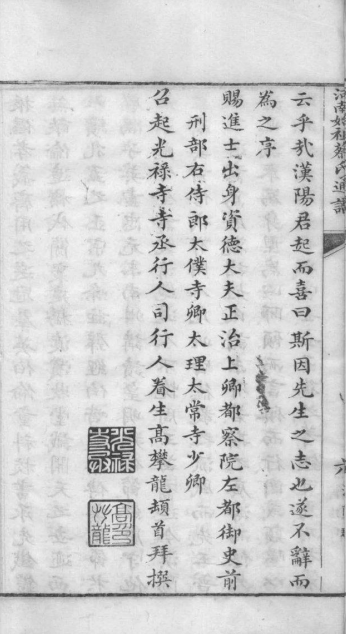 云乎哉漢陽君起而喜曰斯因先生之志也遂不辭而
為之序
賜進士出身資德大夫正治上卿都察院左都御史前
刑部右侍郎太僕寺卿太理太常寺少卿
召起光祿寺寺丞行人司行人眷生高攀龍頓首拜撰